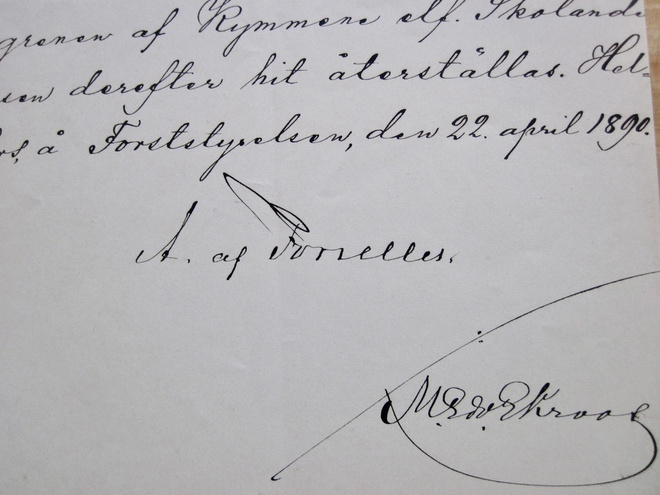 grenen af Kymmene elf. Skolande
sen derefter hit återställas. Hel-
rs, å Forststyrelsen, den 22. april 1890.
A. af Forselles.
M. Edv. Ekroos